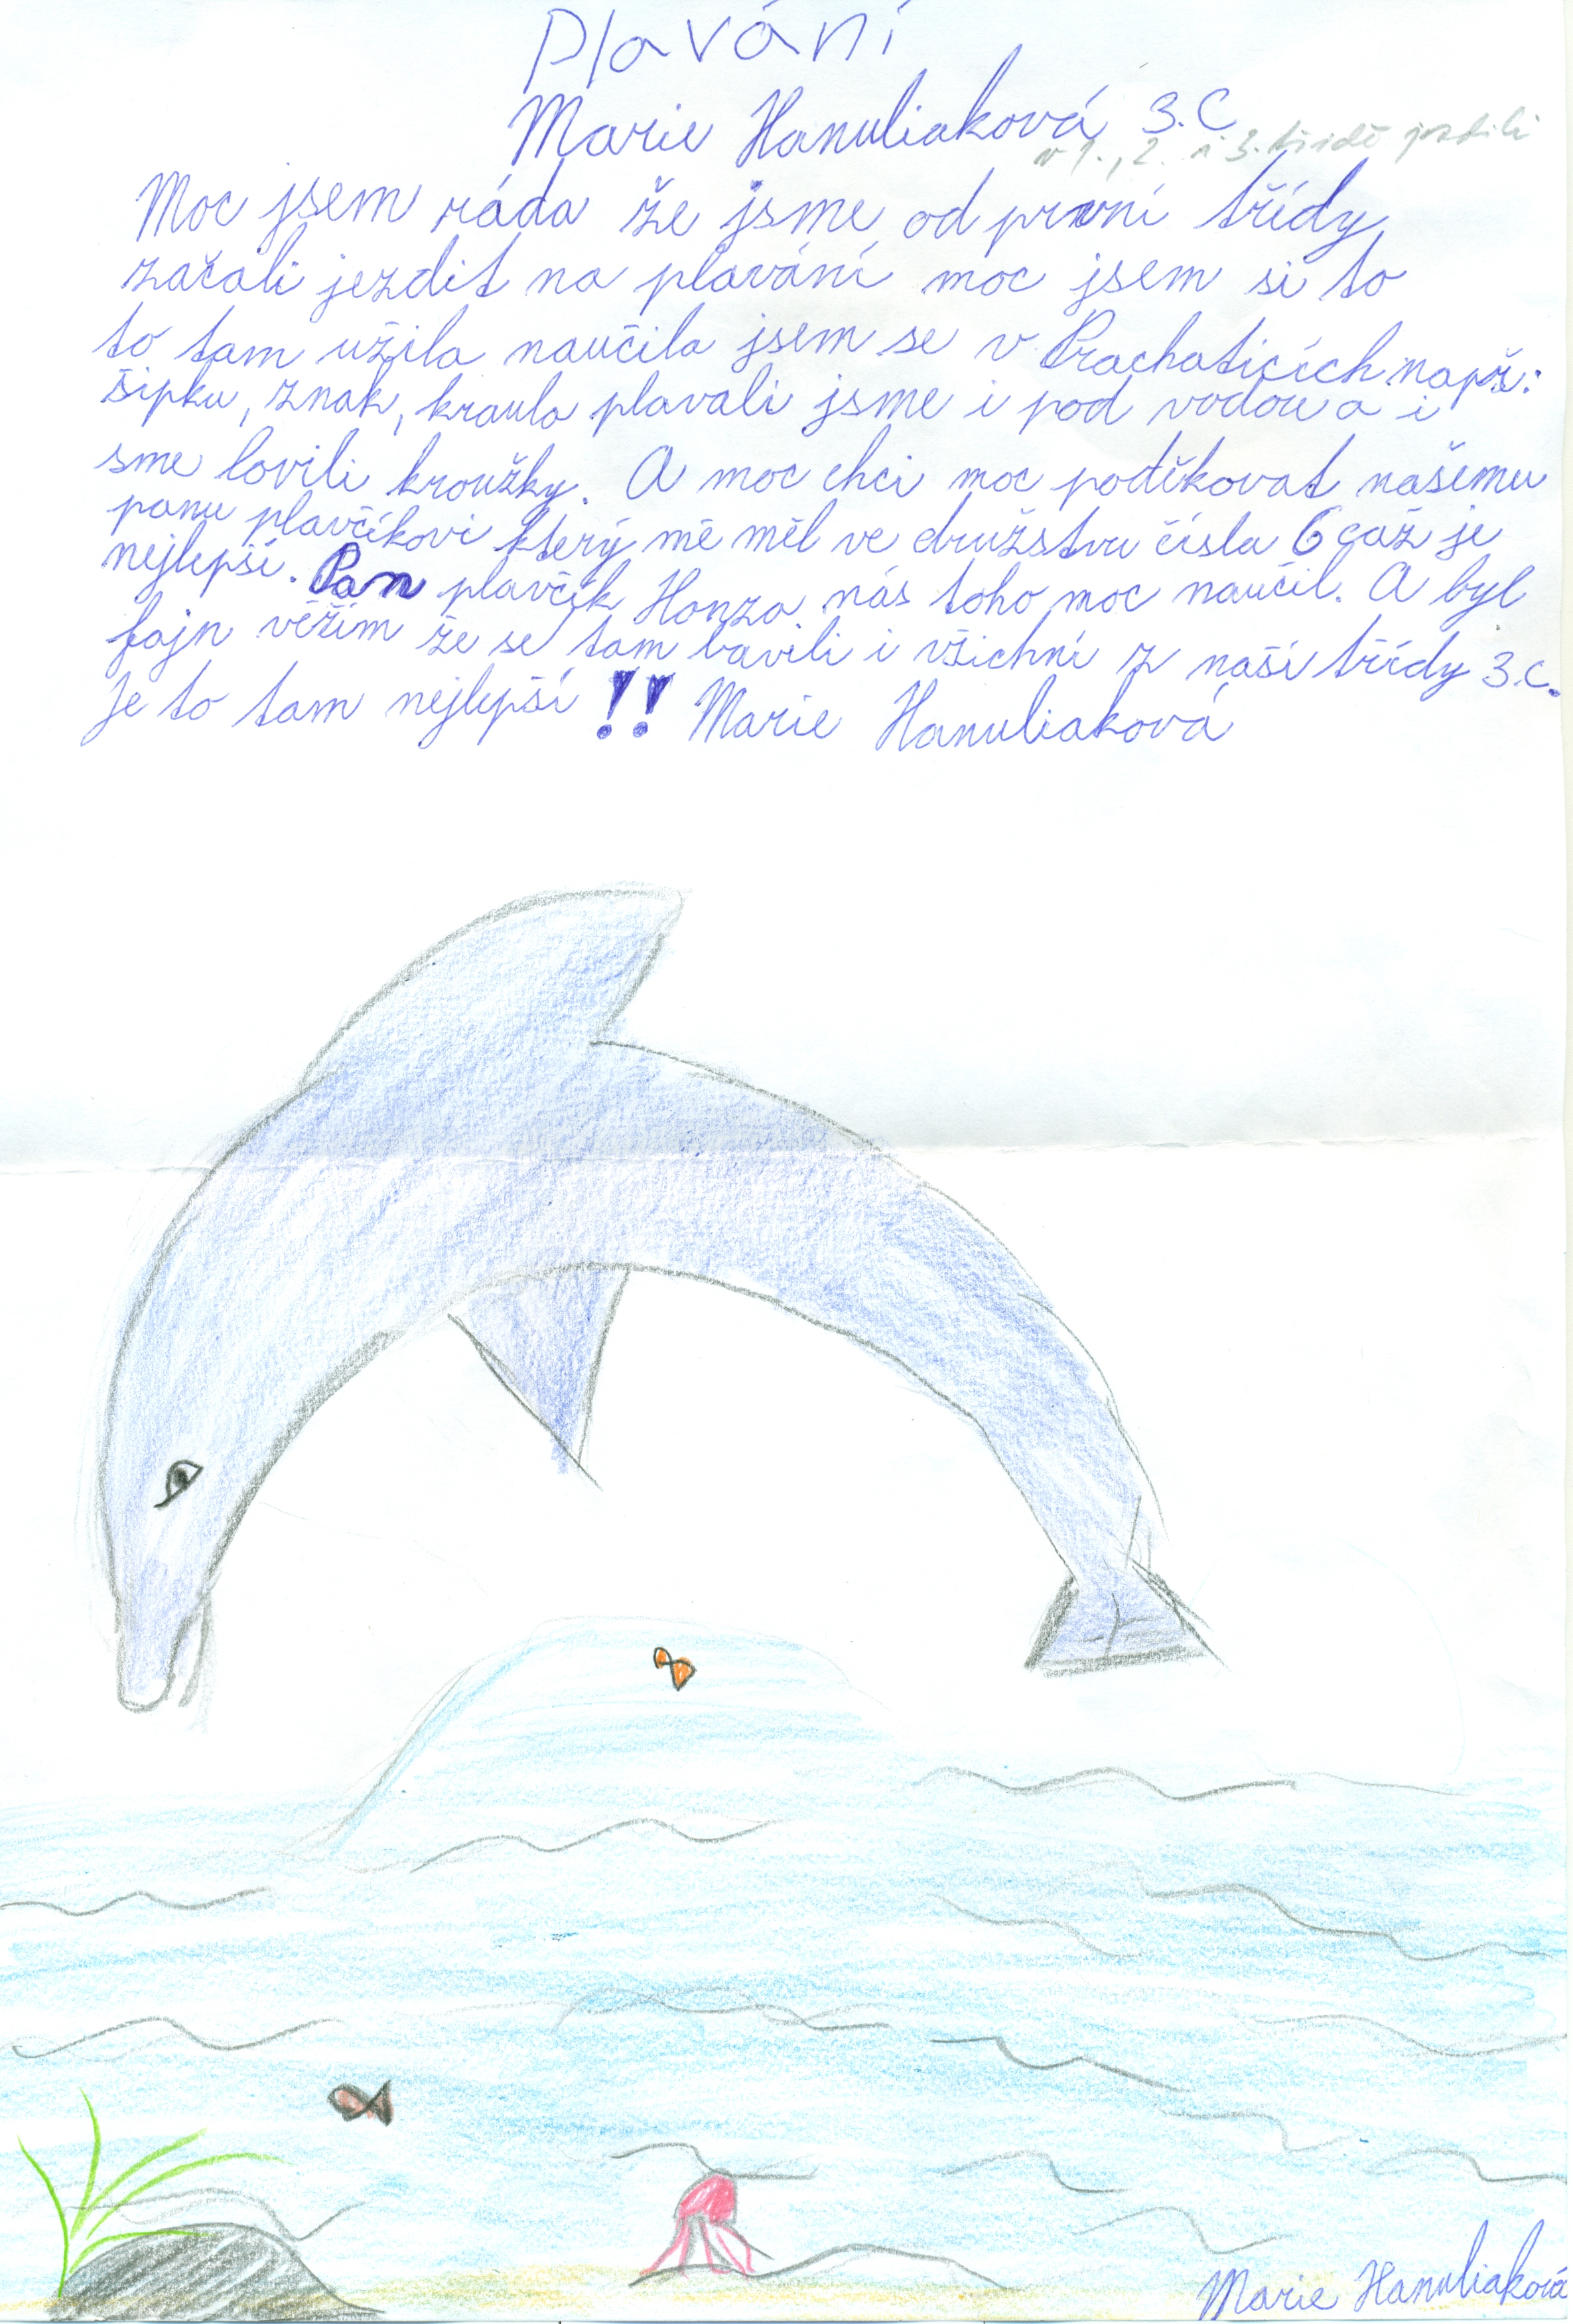 Plavání
Marie Hanuliaková 3. C
v 1., 2. i 3. třídě jezdili
Moc jsem ráda že jsme od první třídy
začali jezdit na plavání moc jsem si to
to tam užila naučila jsem se v Prachaticích např:
šipku, znak, kraula plavali jsme i pod vodou a i
sme lovili kroužky. A moc chci moc poděkovat našemu
panu plavčíkovi který mě měl ve družstvu čísla 6 caž je
nejlepší. Pan plavčík Honza nás toho moc naučil. A byl
fajn věřím že se tam bavili i všichni z naší třídy 3.C.
Je to tam nejlepší !! Marie Hanuliaková
Marie Hanuliaková